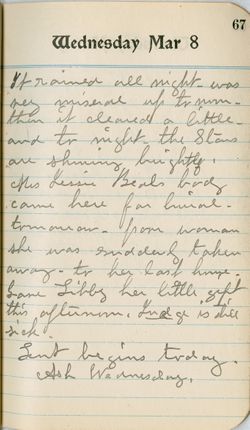 67
Wednesday Mar 8
It rained all night - was
very miseral up to noon -
then it cleared a little -
and to night the Stars
are shining brightly.
Mrs Lessie Beals body
came here for burial -
tomorrow - poor woman
she was suddenly taken
away - to her last home.
Gave Libby her little gift
this afternoon. Judge is still
sick.
Lent begins today.
Ash Wednesday.